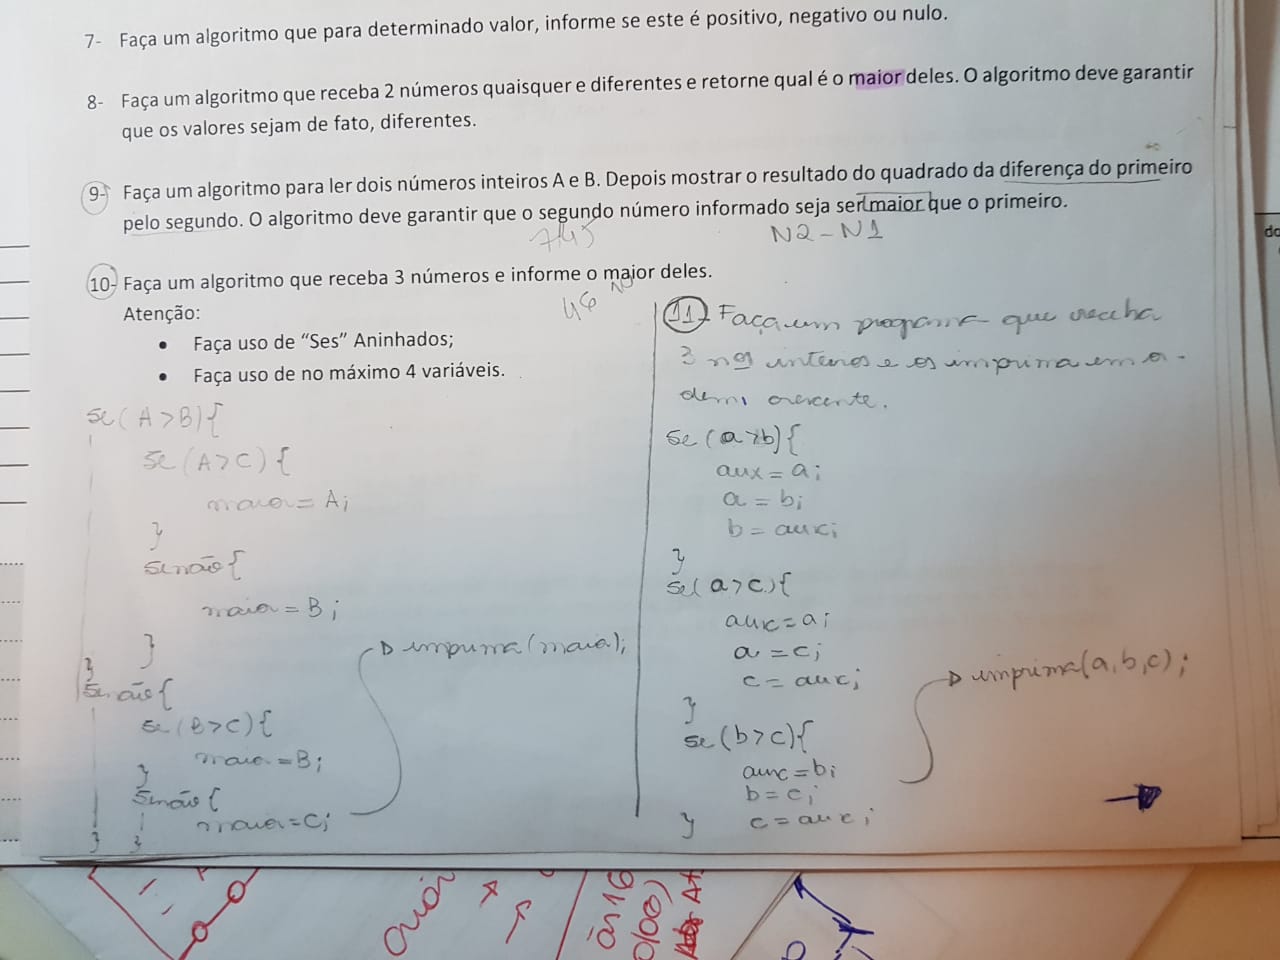 7- Faça um algoritmo que para determinado valor, informe se este é positivo, negativo ou nulo.
8- Faça um algoritmo que receba 2 números quaisquer e diferentes e retorne qual é o maior deles. O algoritmo deve garantir
que os valores sejam de fato, diferentes.
9- Faça um algoritmo para ler dois números inteiros A e B. Depois mostrar o resultado do quadrado da diferença do primeiro
pelo segundo. O algoritmo deve garantir que o segundo número informado seja ser maior que o primeiro.
N2-N1
10- Faça um algoritmo que receba 3 números e informe o maior deles.
Atenção:
• Faça uso de “Ses” Aninhados;
• Faça uso de no máximo 4 variáveis.
se(A>B){
se(A>C){
maior=A;
}
senão{
maior=B;
}
}
senão{
se(B>C){
maior=B;
}
senão{
maior=C;
} }
imprima(maior);
11- Faça um programa que receba
3 nos inteiros e os imprima em o-
dem, crescente.
se(a>b){
aux=a;
a=b;
b=aux;
}
se(a>c){
aux=a;
a=c;
c=aux;
}
se(b>c){
aux=b;
b=c;
} c=aux;
imprima(a,b,c);
do
às 16